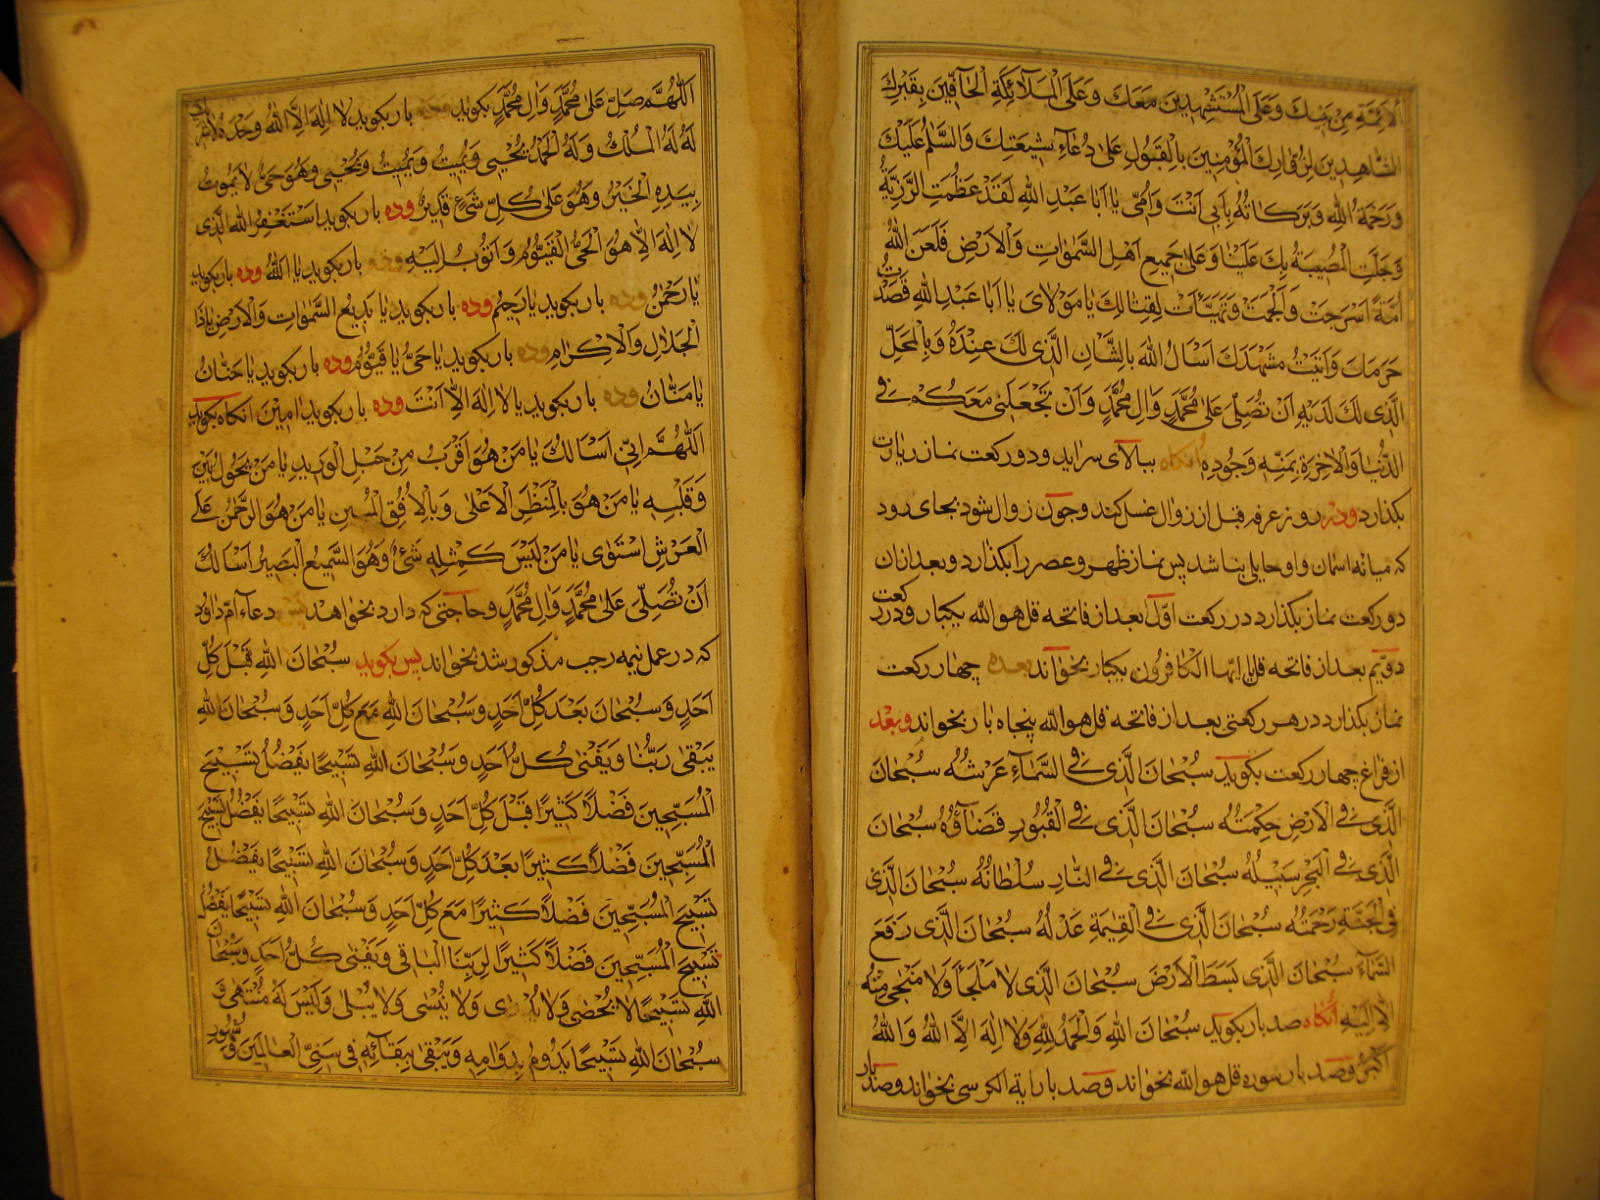 الْاَئِمَّةِ مِنْ بَنِيكَ وَعَلَى الْمُسْتَشْهِدِينَ مَعَكَ وَعَلَى الْمَلَآئِكَةِ الْحَآفِّينَ بِقَبْرِكَ
الشّاهِدِينَ لِزُوّارِكَ الْمُؤْمِنِينَ بِالْقَبُولِ عَلىٰ دُعَآءِ شِيعَتِكَ وَالسَّلٰمُ عَلَيْكَ
وَرَحْمَةُ اللهِ وَبَرَكاتُهُ بِاَبِى اَنْتَ وَاُمِّى يا اَبا عَبْدِ اللهِ لَقَدْ عَظُمَتِ الرَّزِيَّةُ
وَجَلَّتِ الْمُصِيبَةُ بِكَ عَلَيْنا وَعَلىٰ جَمِيعِ اَهْلِ السَّمٰوٰاتِ وَالْاَرْضِ فَلَعَنَ اللهُ
اُمَّةً اَسْرَجَتْ وَاَلْجَمَتْ وَتَهَيَّأَتْ لِقِتالِكَ يا مَوْلاىَ يا اَبا عَبْدِ اللهِ قَصَدْتُ
حَرَمَكَ وَاَتَيْتُ مَشْهَدَكَ اَسْاَلُ اللهَ بِالشَّانِ الَّذِى لَكَ عِنْدَهُ وَبِالْمَحَلِّ
الَّذِى لَكَ لَدَيْهِ اَنْ تُصَلِّىَ عَلىٰ مُحَمَّدٍ وَاٰلِ مُحَمَّدٍ وَاَنْ تَجْعَلَنِى مَعَكُمْ فِى
الدُّنْيا وَالْاٰخِرَةِ بِمَنِّهِ وَجُودِهِ انكاه ببالاى سر ايد ودو ركعت نماز زيارت
بكذارد ودر روز عرفه قبل از زوال غسل كند وچون زوال شود بجاى رود
كه ميانه اسمان واو حايلى نباشد پس نماز ظهر وعصر را بكذارد وبعد ازان
دو ركعت نماز بكذارد در ركعت اوّل بعد از فاتحه قل هو الله يكبار ودر ركعت
دوّيم بعد از فاتحه قل يا ايّها الكافرون يكبار بخواند بعده چهار ركعت
نماز بكذارد در هر ركعتى بعد از فاتحه قل هو الله پنجاه بار بخواند وبعد
از فراغ چهار ركعت بكويد سُبْحانَ الَّذِى فِى السَّمآءِ عَرْشُهُ سُبْحانَ
الَّذِى فِى الْاَرْضِ حِكْمَتُهُ سُبْحانَ الَّذِى فِى الْقُبُورِ قَضآؤُهُ سُبْحانَ
الَّذِى فِى الْبَحْرِ سَبِيلُهُ سُبْحانَ الَّذِى فِى النّارِ سُلْطانُهُ سُبْحانَ الَّذِى
فِى الْجَنَّةِ رَحْمَتُهُ سُبْحانَ الَّذِى فِى الْقِيٰمَةِ عَدْلُهُ سُبْحانَ الَّذِى رَفَعَ
السَّمآءَ سُبْحانَ الَّذِى بَسَطَ الْاَرْضَ سُبْحانَ الَّذِى لا مَلْجَأَ وَلا مَنْجى مِنْهُ
اِلّا اِلَيْهِ انكاه صد بار بكويد سُبْحانَ اللهِ وَالْحَمْدُ لِلّٰهِ وَلا اِلٰهَ اِلَّا اللهُ وَاللهُ
اَكْبَرُ وصد بار سوره قل هو الله بخواند وصد بار اية الكرسى بخواند وصد بار
اَللّٰهُمَّ صَلِّ عَلىٰ مُحَمَّدٍ وَاٰلِ مُحَمَّدٍ بكويد وده بار بكويد لا اِلٰهَ اِلَّا اللهُ وَحْدَهُ لا شَرِيكَ
لَهُ لَهُ الْمُلْكُ وَلَهُ الْحَمْدُ يُحْيِى وَيُمِيتُ وَيُمِيتُ وَيُحْيِى وَهُوَ حَىٌّ لا يَمُوتُ
بِيَدِهِ الْخَيْرُ وَهُوَ عَلىٰ كُلِّ شَىْءٍ قَدِيرٌ وده بار بكويد اَسْتَغْفِرُ اللهَ الَّذِى
لا اِلٰهَ اِلّا هُوَ الْحَىُّ الْقَيُّومُ وَاَتُوبُ اِلَيْهِ وده بار بكويد يا اَللهُ وده بار بكويد
يا رَحْمٰنُ وده بار بكويد يا رَحِيمُ وده بار بكويد يا بَدِيعَ السَّمٰوٰاتِ وَالْاَرْضِ يا ذَا
الْجَلالِ وَالْاِكْرامِ وده بار بكويد يا حَىُّ يا قَيُّومُ وده بار بكويد يا حَنّانُ
يا مَنّانُ وده بار بكويد يا لا اِلٰهَ اِلّا اَنْتَ وده بار بكويد اٰمِينَ انكاه بكويد
اَللّٰهُمَّ اِنِّى اَسْاَلُكَ يا مَنْ هُوَ اَقْرَبُ مِنْ حَبْلِ الْوَرِيدِ يا مَنْ يَحُولُ بَيْنَ
وَقَلْبِهِ يا مَنْ هُوَ بِالْمَنْظَرِ الْاَعْلىٰ وَبِالْاُفُقِ الْمُبِينِ يا مَنْ هُوَ الرَّحْمٰنُ عَلَى
الْعَرْشِ اسْتَوىٰ يا مَنْ لَيْسَ كَمِثْلِهِ شَىْءٌ وَهُوَ السَّمِيعُ الْبَصِيرُ اَسْاَلُكَ
اَنْ تُصَلِّىَ عَلىٰ مُحَمَّدٍ وَاٰلِ مُحَمَّدٍ وحاجتى كه دارد بخواهد پس دعاء امّ داود
كه در عمل نيمه رجب مذكور شد بخواند پس بكويد سُبْحانَ اللهِ قَبْلَ كُلِّ
اَحَدٍ وَسُبْحانَ بَعْدَ كُلِّ اَحَدٍ وَسُبْحانَ اللهِ مَعَ كُلِّ اَحَدٍ وَسُبْحانَ اللهِ
يَبْقىٰ رَبُّنا وَيَفْنىٰ كُلُّ اَحَدٍ وَسُبْحانَ اللهِ تَسْبِيحًا يَفْضُلُ تَسْبِيحَ
الْمُسَبِّحِينَ فَضْلًا كَثِيرًا قَبْلَ كُلِّ اَحَدٍ وَسُبْحانَ اللهِ تَسْبِيحًا يَفْضُلُ تَسْبِيحَ
الْمُسَبِّحِينَ فَضْلًا كَثِيرًا بَعْدَ كُلِّ اَحَدٍ وَسُبْحانَ اللهِ تَسْبِيحًا يَفْضُلُ
تَسْبِيحَ الْمُسَبِّحِينَ فَضْلًا كَثِيرًا مَعَ كُلِّ اَحَدٍ وَسُبْحانَ اللهِ تَسْبِيحًا يَفْضُلُ
تَسْبِيحَ الْمُسَبِّحِينَ فَضْلًا كَثِيرًا لِرَبِّنَا الْباقِى وَيَفْنىٰ كُلُّ اَحَدٍ وَسُبْحانَ
اللهِ تَسْبِيحًا لا يُحْصىٰ وَلا يُدْرىٰ وَلا يُنْسىٰ وَلا يُبْلىٰ وَلَيْسَ لَهُ مُنْتَهىٰ وَ
سُبْحانَ اللهِ تَسْبِيحًا يَدُومُ بِدَوامِهِ وَيَبْقىٰ بِبَقآئِهِ فِى سَنِىِّ الْعالَمِينَ وَشُهُورِ